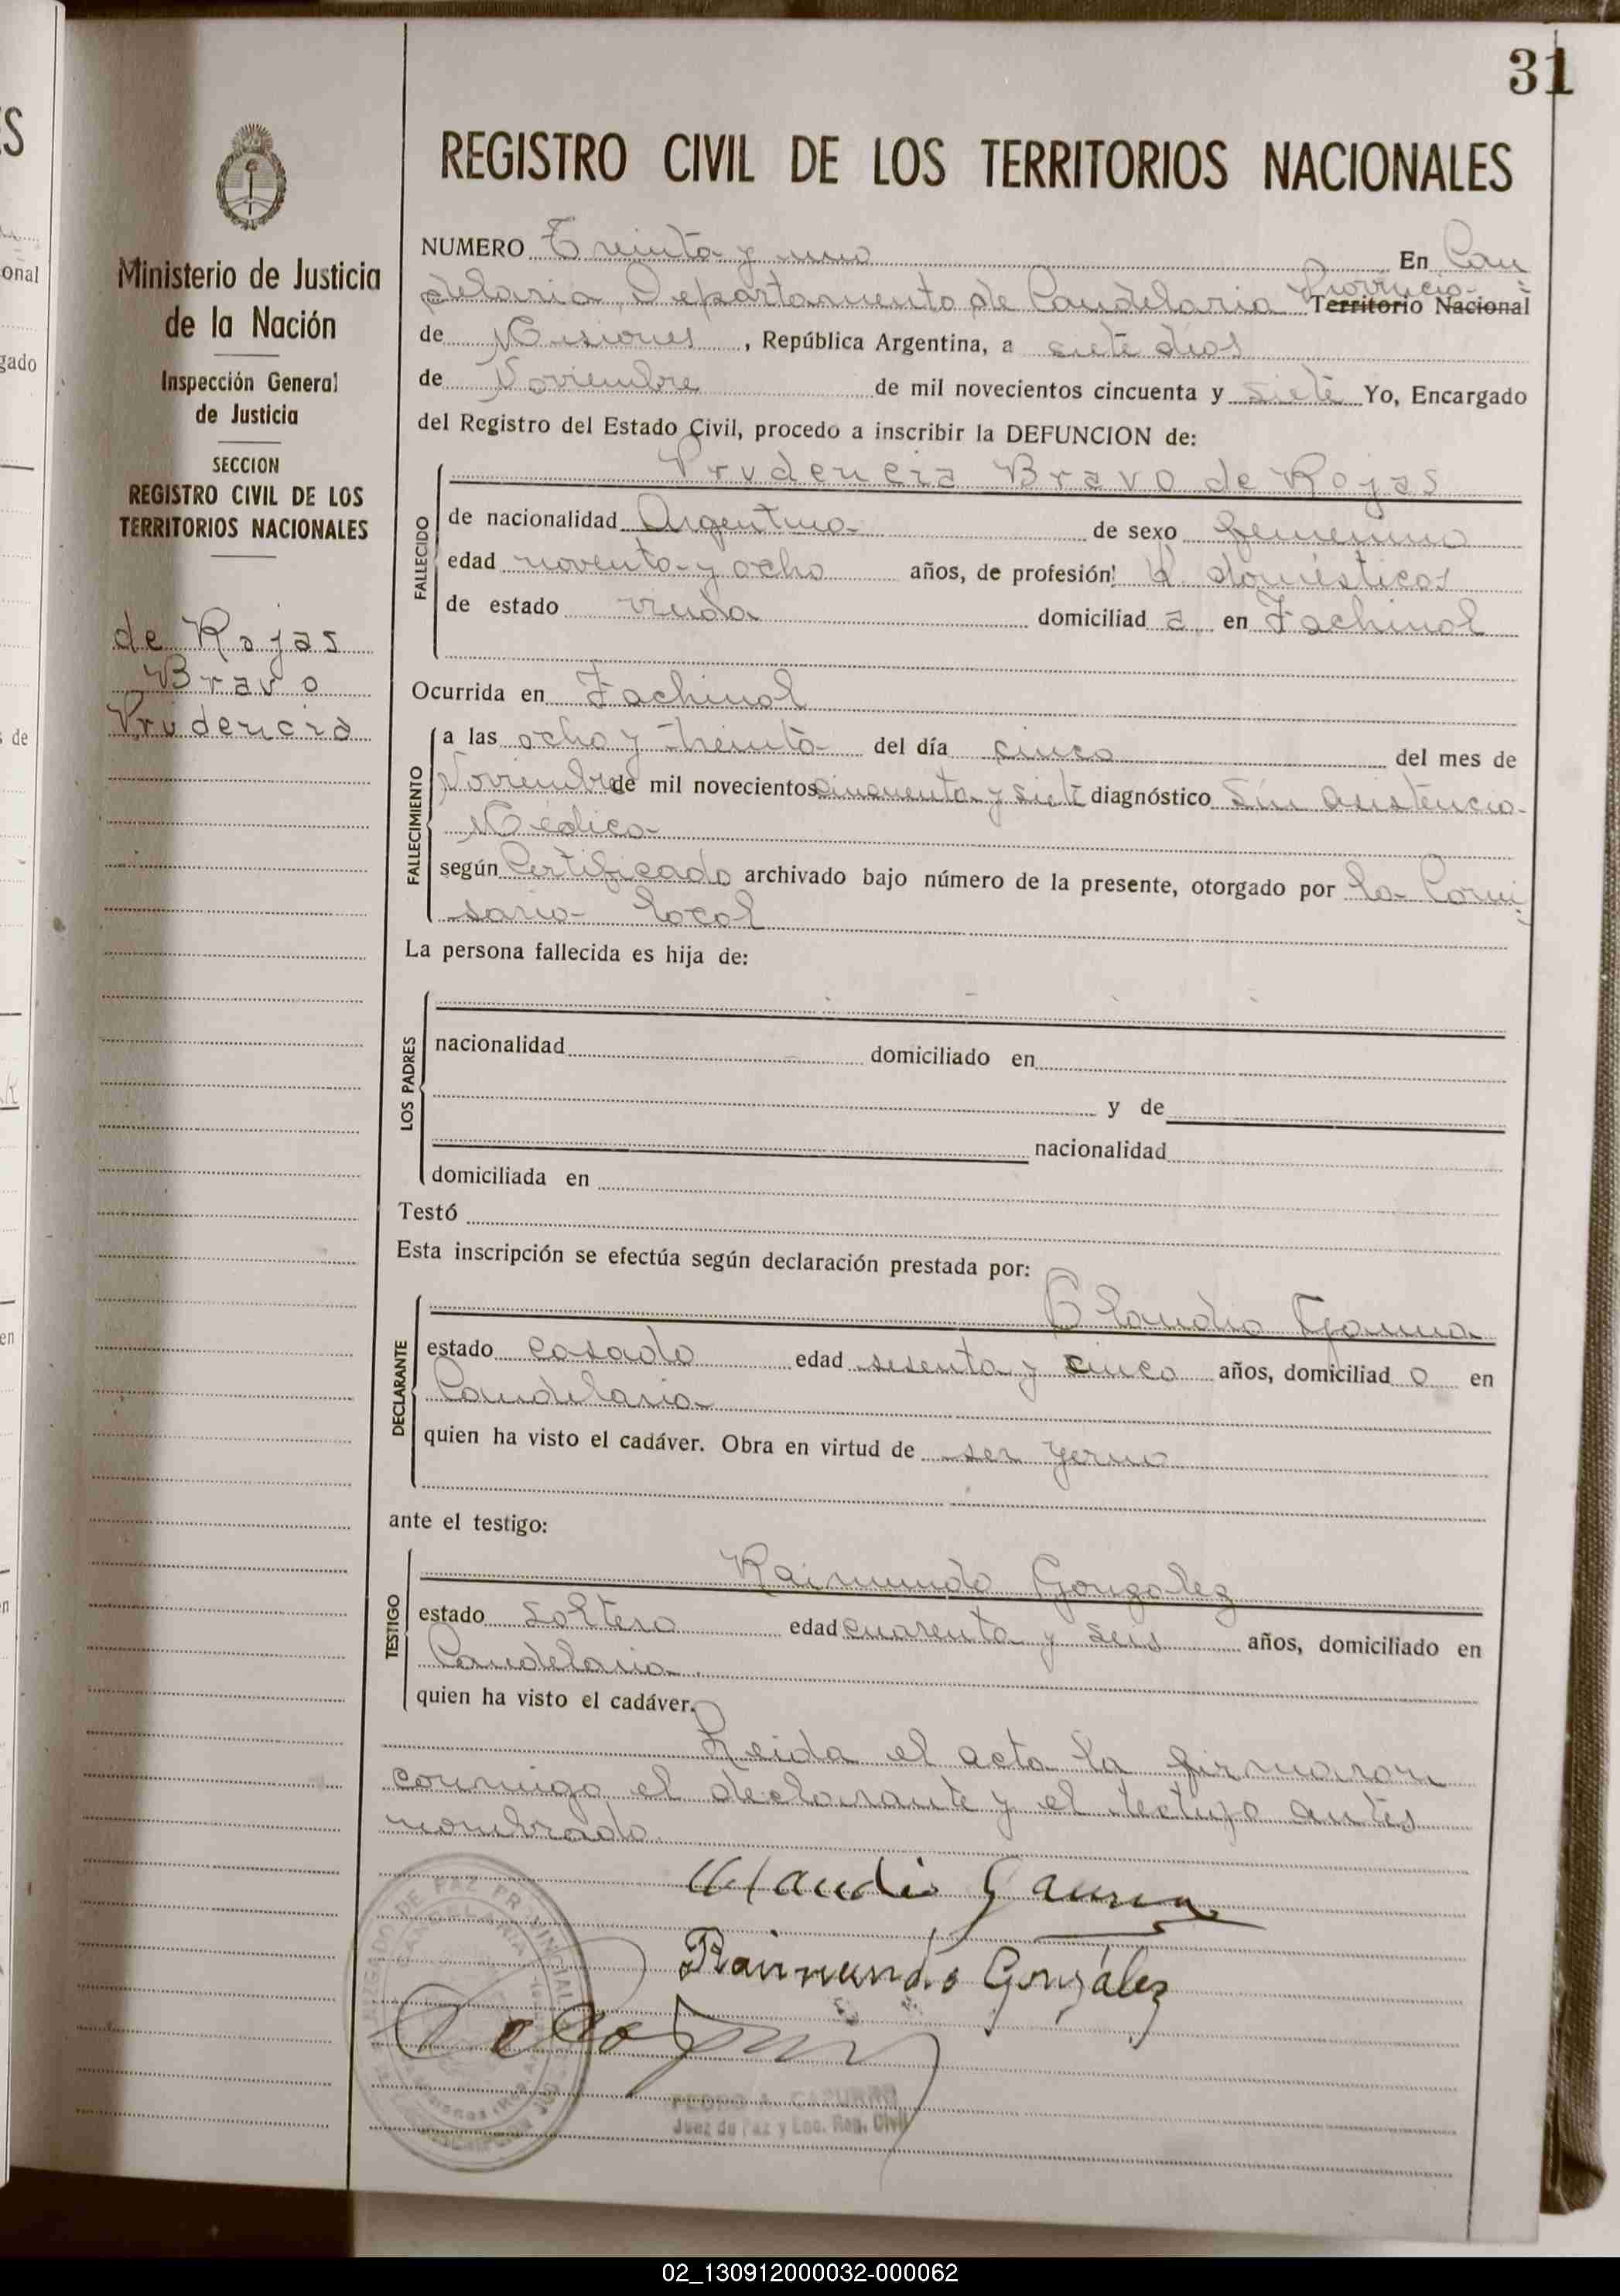 31
REGISTRO CIVIL DE LOS TERRITORIOS NACIONALES
Ministerio de Justicia
de la Nación
Inspección General
de Justicia
SECCION
REGISTRO CIVIL DE LOS
TERRITORIOS NACIONALES
de Rojas
Bravo
Prudencia
NUMERO Treinta y uno En Can
delaria, Departamento de Candelaria Provincia Territorio Nacional
de Misiones, República Argentina, a siete dias
de Noviembre de mil novecientos cincuenta y siete Yo, Encargado
del Registro del Estado Civil, procedo a inscribir la DEFUNCION de:
Prudencia Bravo de Rojas
FALLECIDO
de nacionalidad Argentina de sexo femenino
edad noventa y ocho años, de profesión: Q. domésticos
de estado viuda domiciliad a en Fachinal
Ocurrida en Fachinal
FALLECIMIENTO
a las ocho y treinta del día cinco del mes de
Noviembre de mil novecientos cincuenta y siete diagnóstico Sin asistencia
Medica
según Certificado archivado bajo número de la presente, otorgado por la Comi
saria local
La persona fallecida es hija de:
LOS PADRES
nacionalidad domiciliado en
y de
nacionalidad
domiciliada en
Testó
Esta inscripción se efectúa según declaración prestada por:
Claudio Gauna
DECLARANTE
estado casado edad sesenta y cinco años, domiciliad o en
Candelaria
quien ha visto el cadáver. Obra en virtud de ser yerno
ante el testigo:
Raimundo Gonzalez
TESTIGO
estado soltero edad cuarenta y seis años, domiciliado en
Candelaria.
quien ha visto el cadáver.
Leida el acta la firmaron
conmigo el declarante y el testigo antes
nombrado.
Claudio Gauna
Raimundo González
JUZGADO DE PAZ PROVINCIAL
CANDELARIA
Juez de Paz y Enc. Reg. Civil
02_130912000032-000062